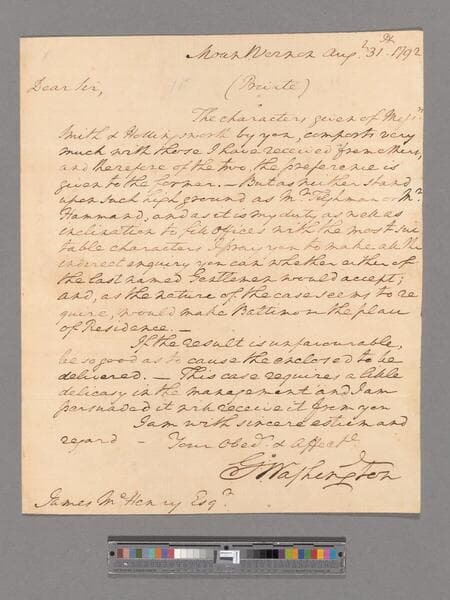 Mount Vernon Augt. 31st. 1792
(Private)
Dear Sir,
The characters given of Messrs.
Smith & Hollingsworth by you, comports very
much with those I have received from others,
and therefore of the two, the preference is
given to the former. — But as neither stand
upon such high ground as Mr. Tilghman or Mr.
Hammond, and as it is my duty as well as
inclination to fill offices with the most sui
table characters I pray you to make all the
indirect enquiry you can whether either of
the last named Gentlemen would accept;
and, as the nature of the case seems to re
quire, would make Baltimore the place
of Residence. —
If the result is unfavourable,
be so good as to cause the enclosed to be
delivered. — This case requires a little
delicasy in the management and I am
persuaded it will receive it from you
I am with sincere esteem and
regard — Your Obedt. & Affecte.
Go: Washington
James McHenry Esqr.